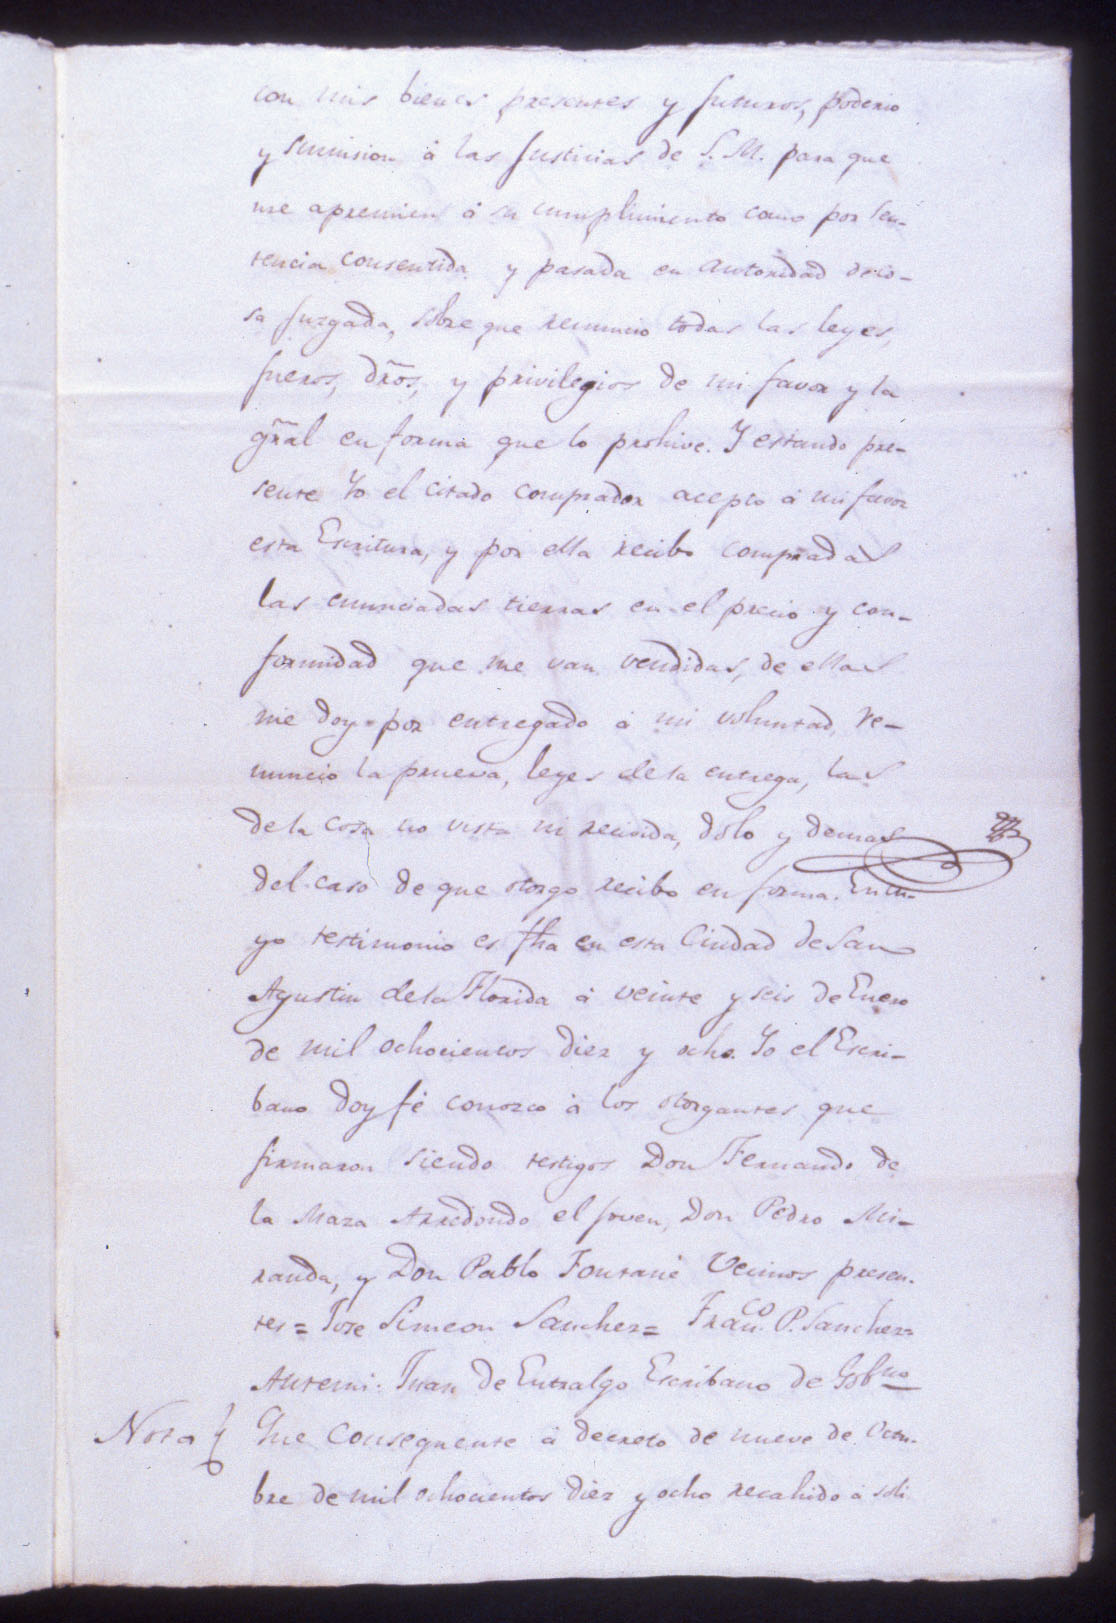 con mis bienes presentes y futuros, poderio
y sumision â las Justicias de S. M. para que
me apremien â su cumplimiento como por sen-
tencia consentida y pasada en autoridad de co-
sa juzgada, sobre que renuncio todas las leyes,
fueros, dr̃os, y privilegios de mi favor y la
gr̃al en forma que lo prohive. Y estando pre-
sente Yo el citado comprador acepto â mi favor
esta Escritura, y por ella recibo compradas
las enunciadas tierras en el precio y con-
formidad que me van vendidas, de ellas
me doy por entregado â mi voluntad, re-
nuncio la prueva, leyes de la entrega, las
de la cosa no vista ni recivida, dôlo y demas
del caso de que otorgo recibo en forma. En cu-
yo testimonio es fha en esta Ciudad de San
Agustin de la Florida â veinte y seis de Enero
de mil ochocientos diez y ocho. Yo el Escri-
bano doy fé conozco â los otorgantes que
firmaron siendo testigos Don Fernando de
la Maza Arredondo el joven, Don Pedro Mi-
randa, y Don Pablo Fontané Vecinos presen-
tes = Jose Simeon Sanchez = Franco. P. Sanchez =
Antemi: Juan de Entralgo Escribano de Gobno
Nota Que consequente â decreto de nueve de Octu-
bre de mil ochocientos diez y ocho recahido â soli